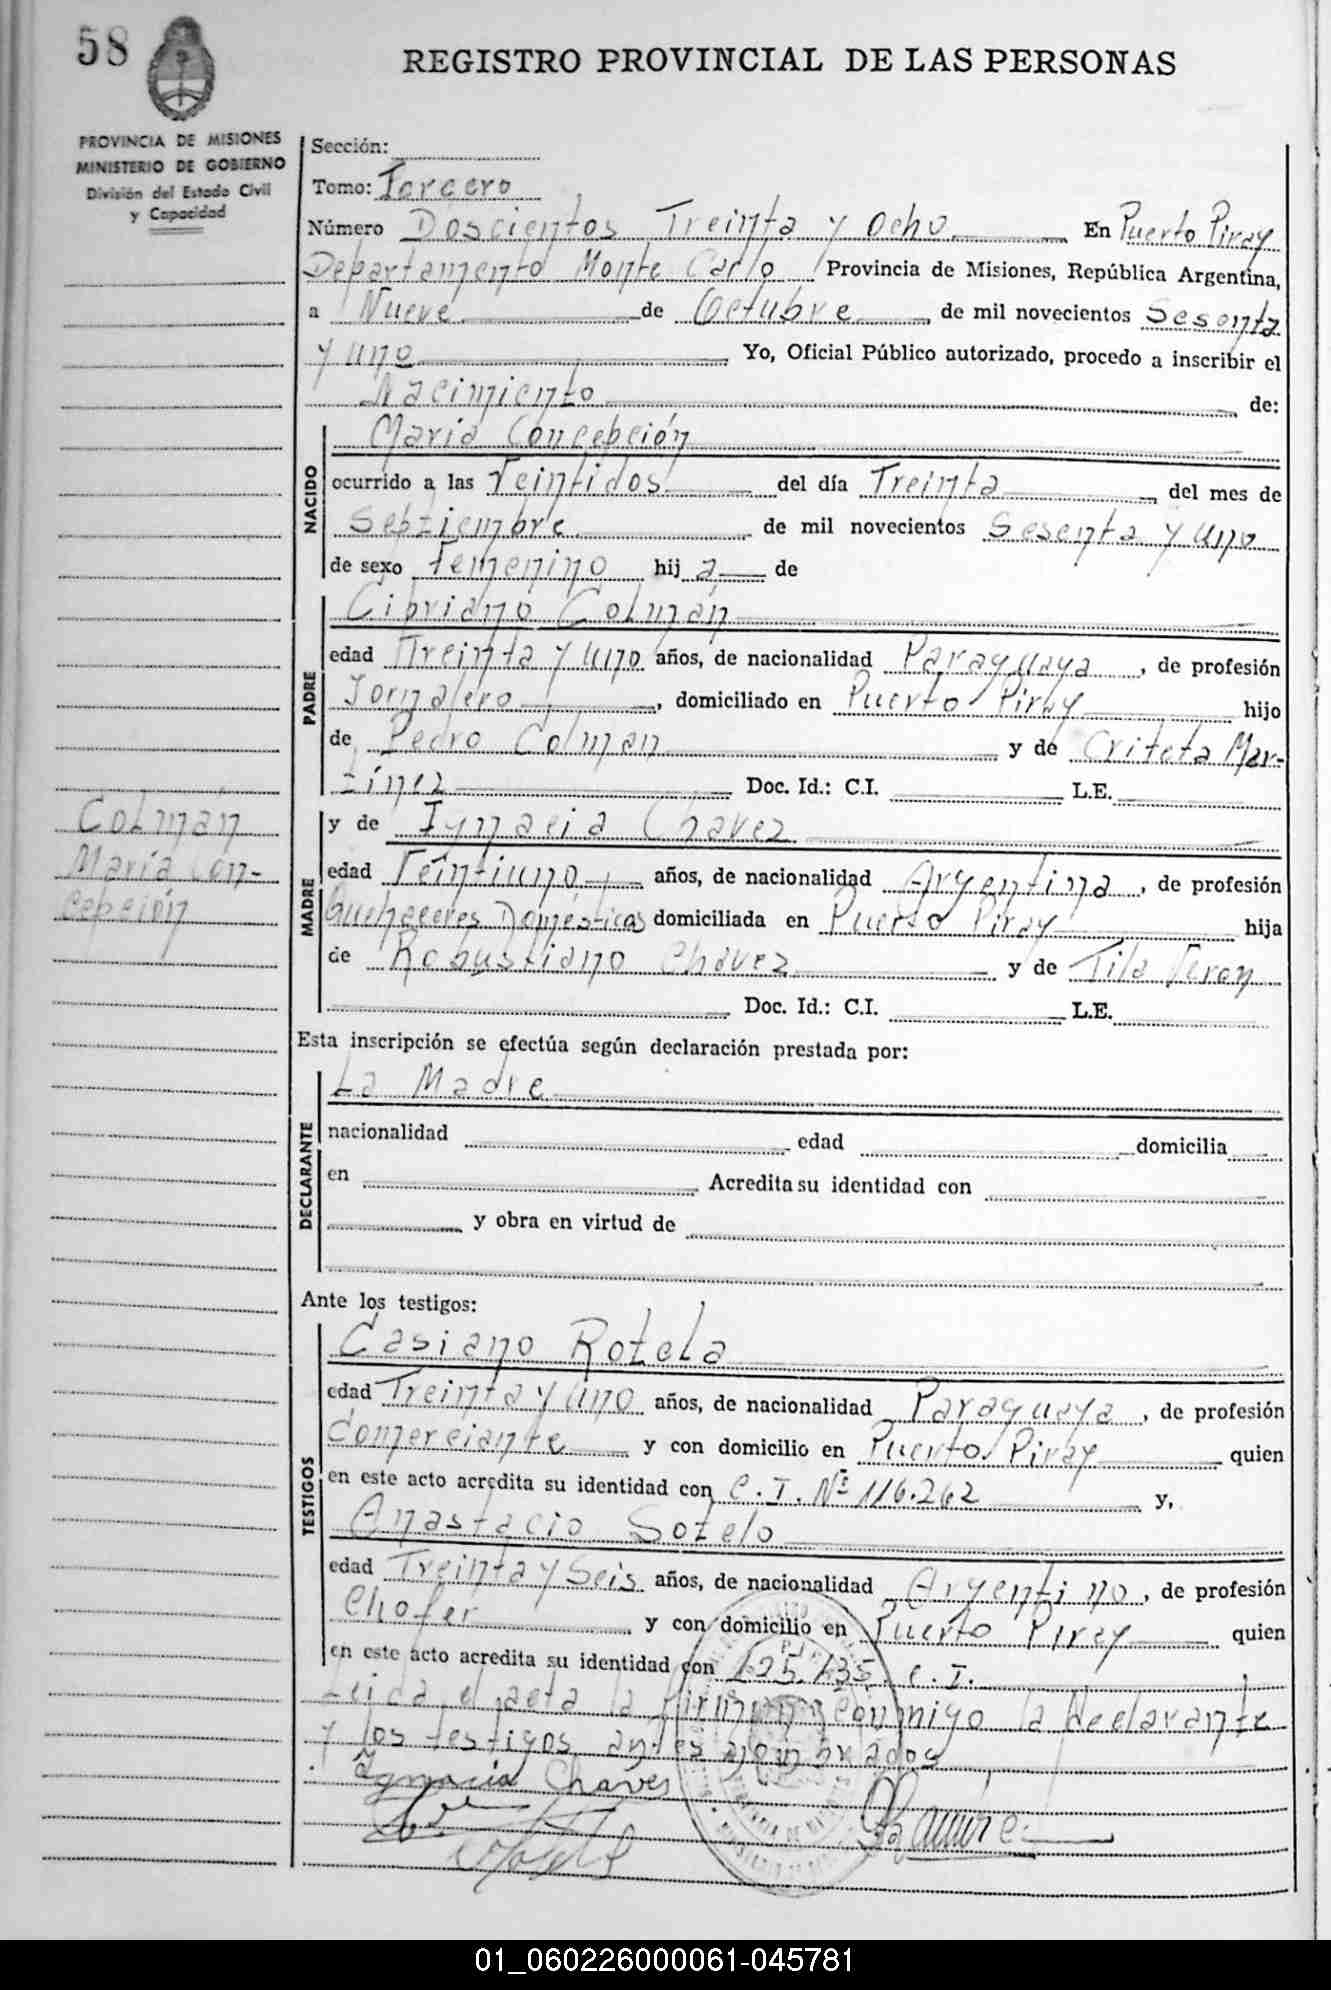 58
REGISTRO PROVINCIAL DE LAS PERSONAS
PROVINCIA DE MISIONES
MINISTERIO DE GOBIERNO
División del Estado Civil
y Capacidad
Sección:
Tomo: Tercero
Número Doscientos Treinta y Ocho En Puerto Piray
Departamento Monte Carlo Provincia de Misiones, República Argentina,
a Nueve de Octubre de mil novecientos Sesenta
y uno Yo, Oficial Público autorizado, procedo a inscribir el
Nacimiento de:
NACIDO
María Concepción
ocurrido a las Veintidos del día Treinta del mes de
Septiembre de mil novecientos Sesenta y uno
de sexo Femenino hij a de
PADRE
Cipriano Colmán
edad Treinta y uno años, de nacionalidad Paraguaya, de profesión
Jornalero, domiciliado en Puerto Piray hijo
de Pedro Colman y de Criteta Mar-
tínez Doc. Id.: C.I. L.E.
Colmán
María Con-
cepción
MADRE
y de Ignacia Chavez
edad Veintiuno años, de nacionalidad Argentina, de profesión
Quehaceres Domésticas domiciliada en Puerto Piray hija
de Robustiano Chavez y de Tila Veron
Doc. Id.: C.I. L.E.
Esta inscripción se efectúa según declaración prestada por:
DECLARANTE
La Madre
nacionalidad edad domicilia
en Acredita su identidad con
y obra en virtud de
Ante los testigos:
TESTIGOS
Casiano Rotela
edad Treinta y uno años, de nacionalidad Paraguaya, de profesión
Comerciante y con domicilio en Puerto Piray quien
en este acto acredita su identidad con C.I. Nº 116.262 y,
Anastacio Sotelo
edad Treinta y Seis años, de nacionalidad Argentino, de profesión
Chofer y con domicilio en Puerto Piray quien
en este acto acredita su identidad con 125.135. C.I.
Leida el acta la firman conmigo la declarante
y los testigos antes nombrados
Ignacia Chaves
Ramire
01_060226000061-045781